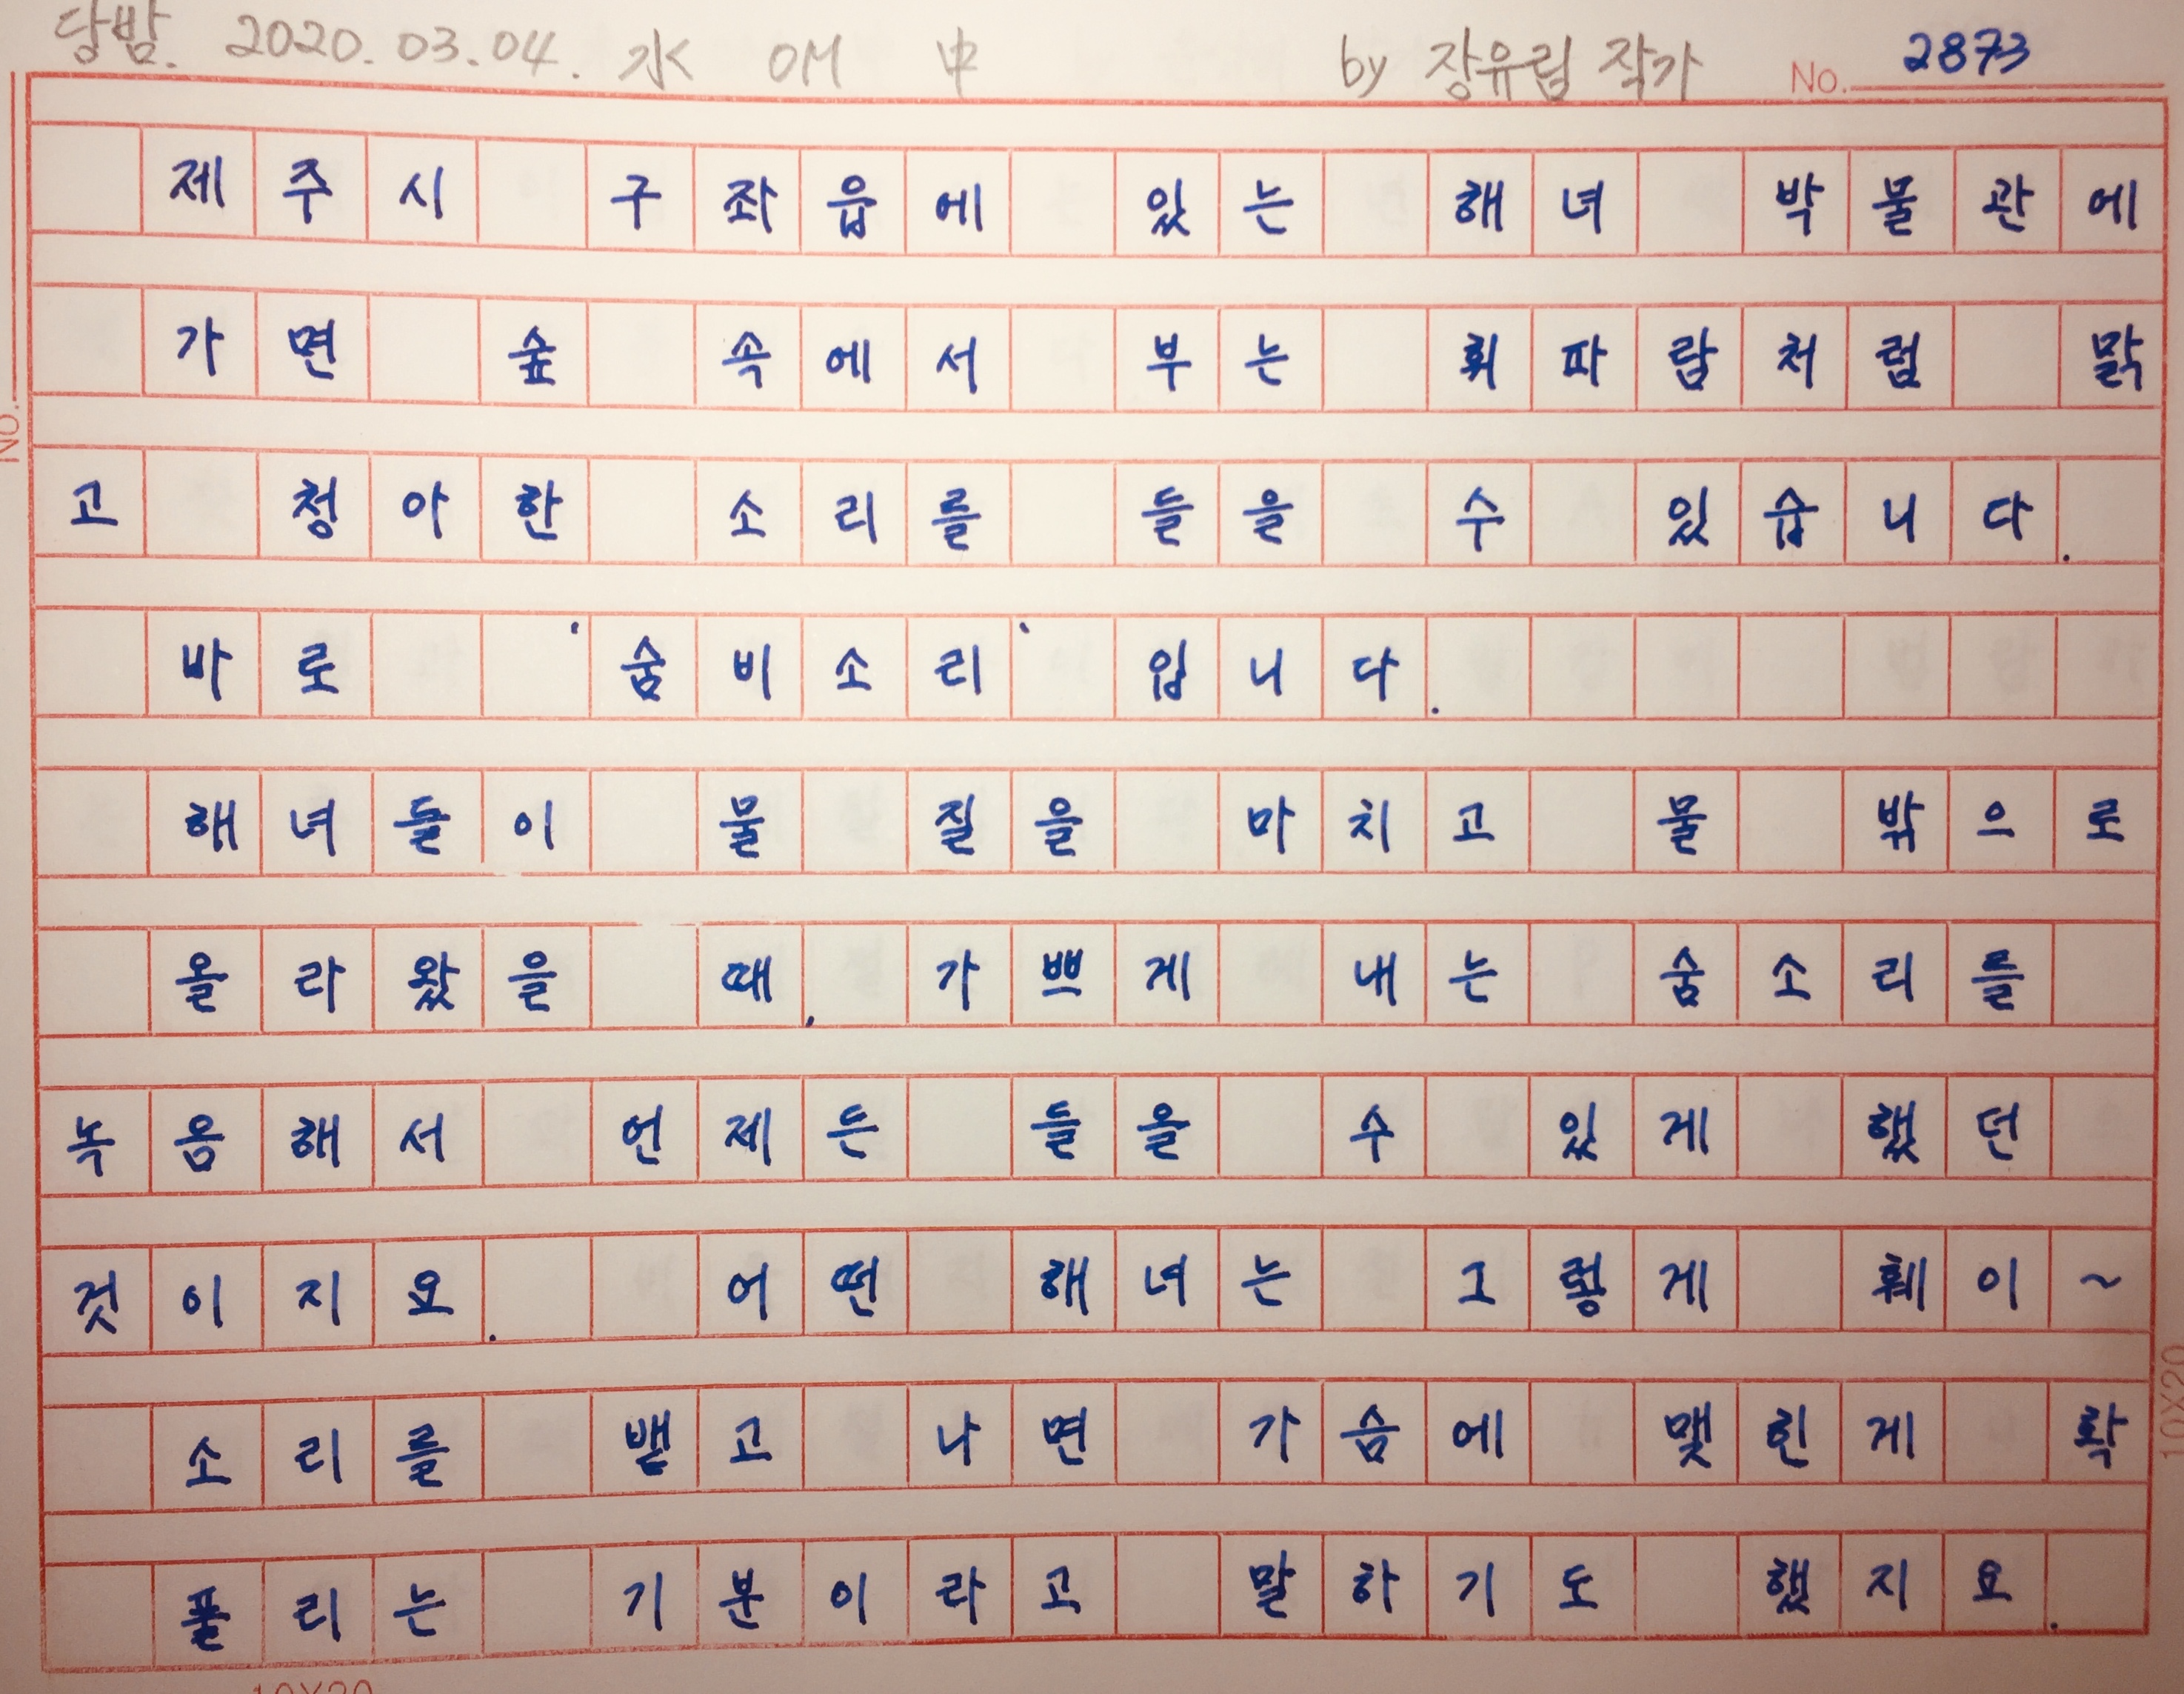 당밤. 2020.03.04. 水 OM 中 by 장유림 작가 No. 2873
제주시 구좌읍에 있는 해녀 박물관에
가면 숲 속에서 부는 휘파람처럼 맑
고 청아한 소리를 들을 수 있습니다.
바로 '숨비소리' 입니다.
해녀들이 물 질을 마치고 물 밖으로
올라왔을 때, 가쁘게 내는 숨소리를
녹음해서 언제든 들을 수 있게 했던
것이지요. 어떤 해녀는 그렇게 훼이~
소리를 뱉고 나면 가슴에 맺힌게 확
풀리는 기분이라고 말하기도 했지요.
No.
10X20
10X20